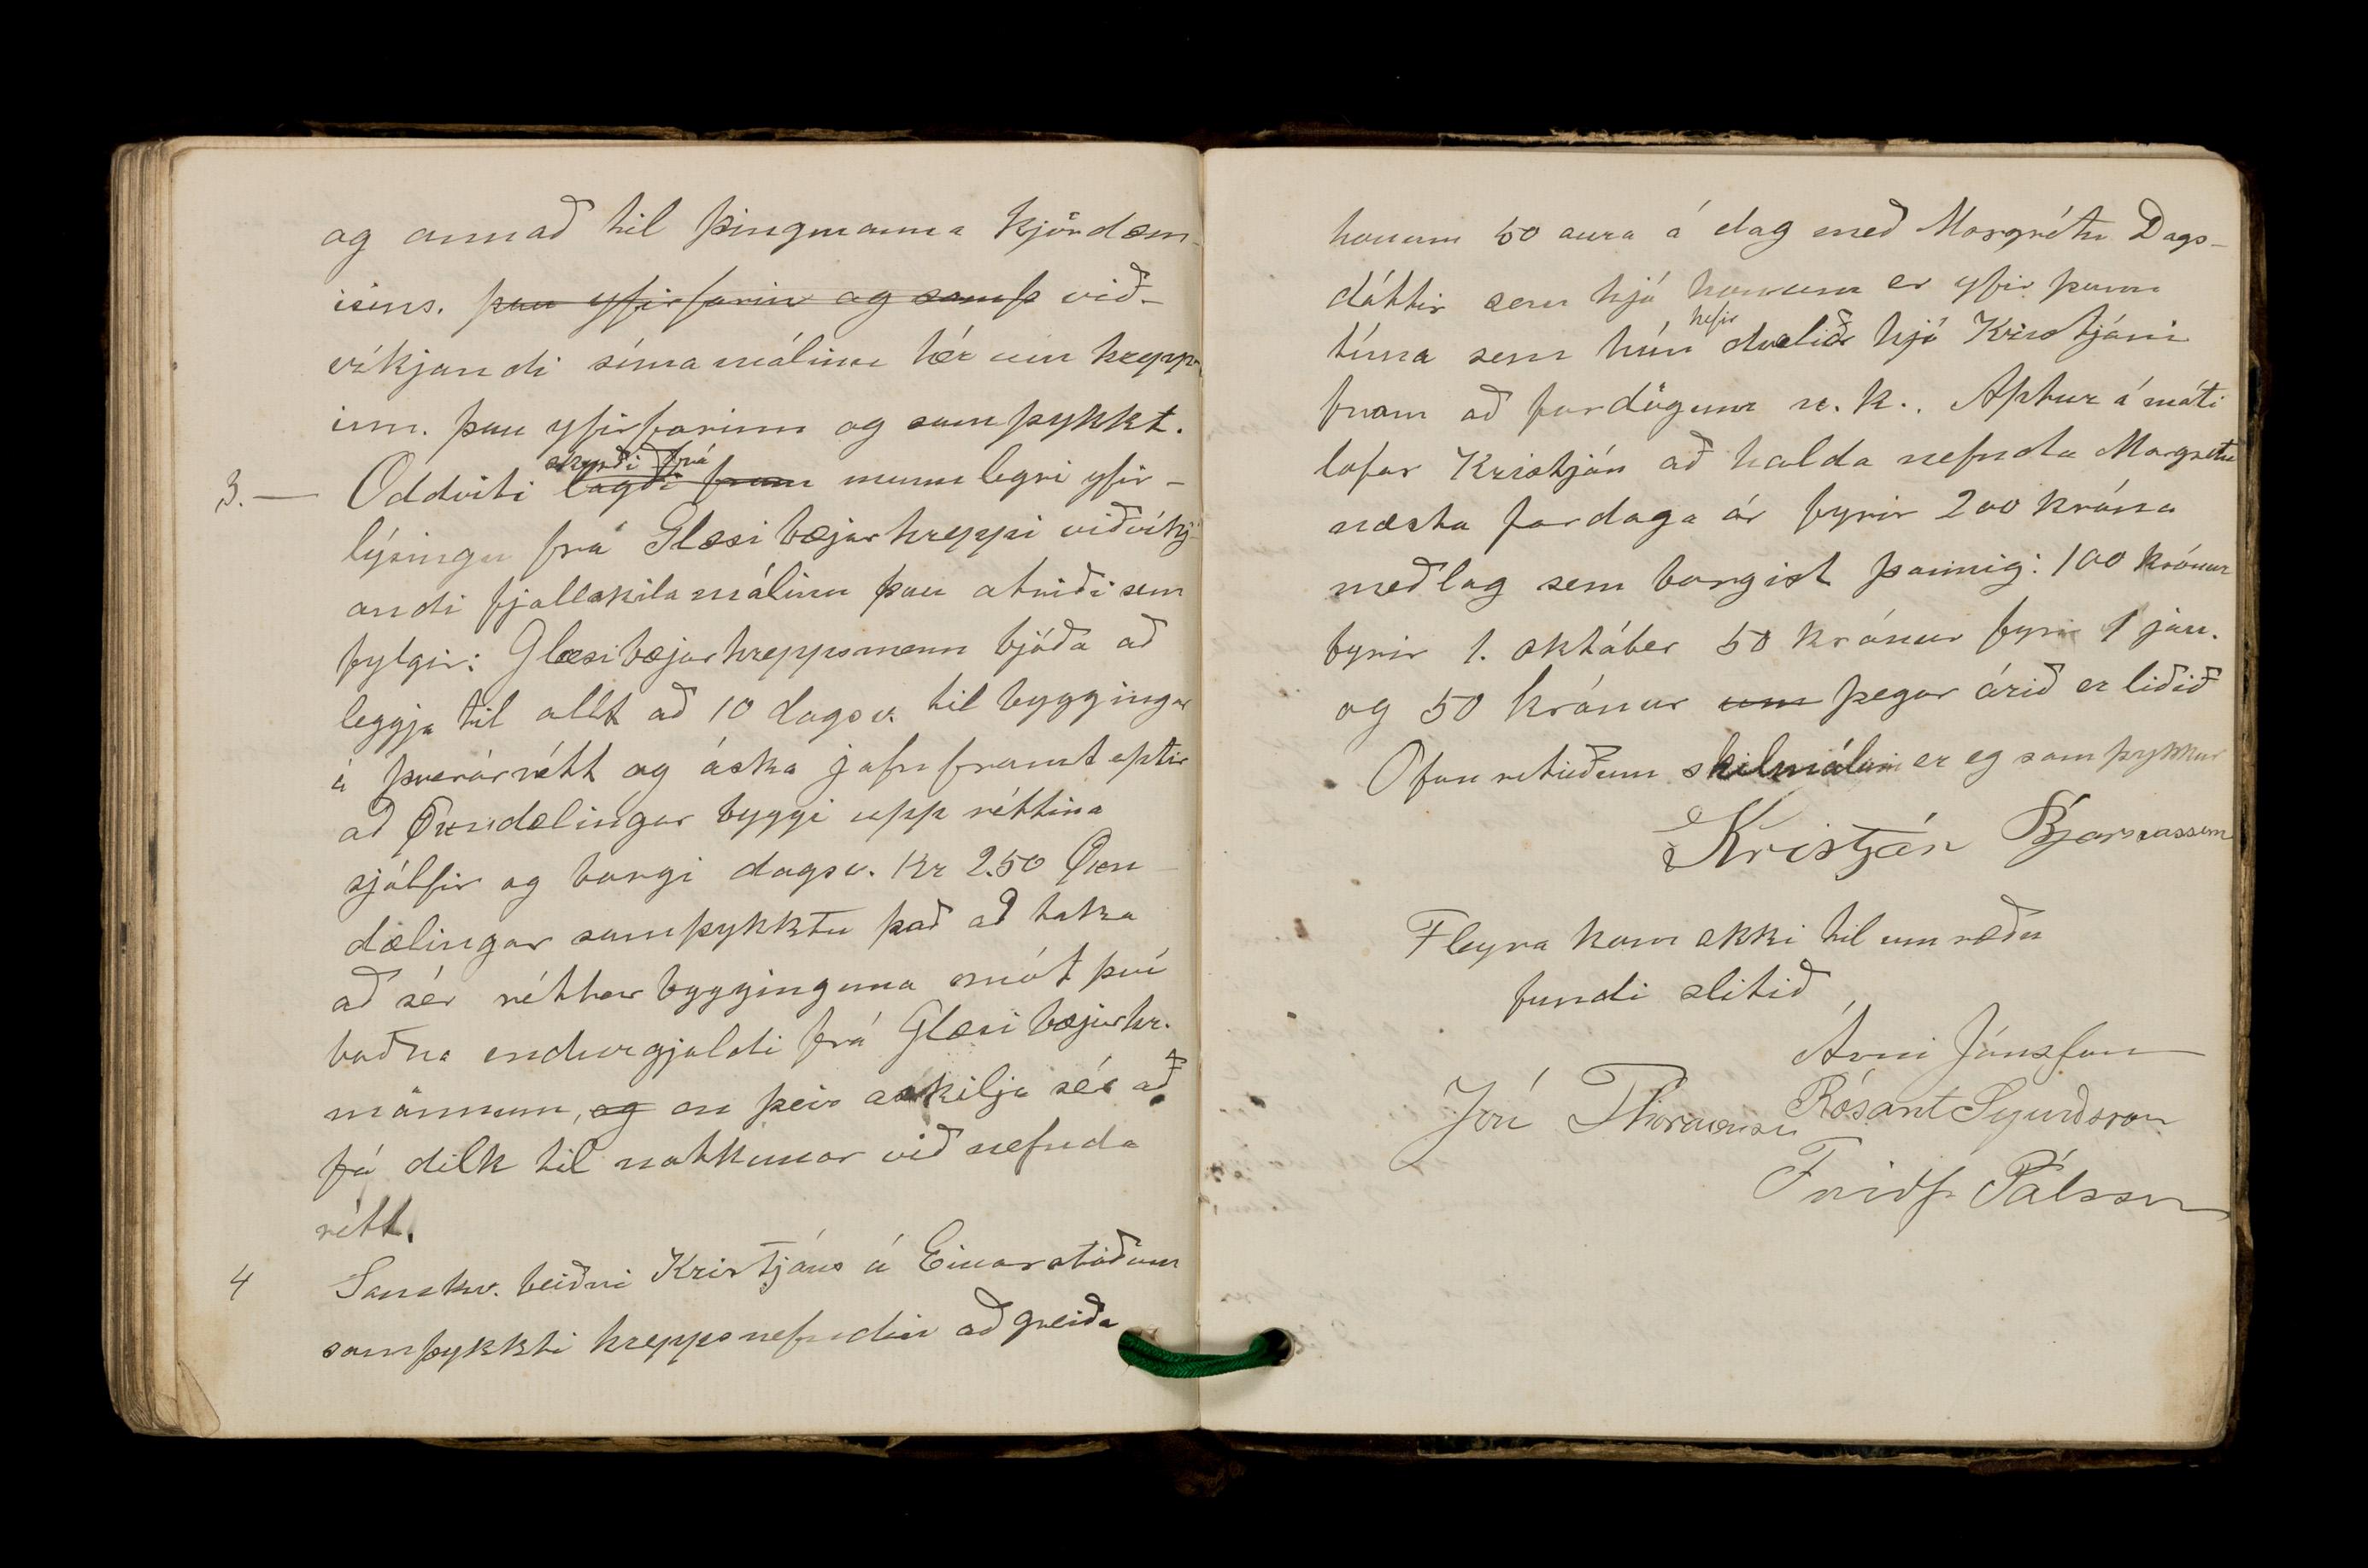 og annað til þingmanna Kjördæm-
isins. þau yfirfarin og samþ við-
víkjandi símamálinu hér um hrepp-
inn. þau yfirfarinn og samþykkt.
3. — Oddviti lagði fram skyrði frá munnlegri yfir-
lýsingu frá Glæsibæjarhreppi viðvíkj-
andi fjallskilamálinu þau atriði sem
fylgir: Glæsibæjarhreppsmenn bjóða að
leggja til allt að 10 dagsv. til byggingar
á þverárrétt og áska jafnframt eptir
að Öxndælingar byggi upp réttina
sjálfir og borgi dagsv. Kr 2.50 Öxn-
dælingar samþykktu það að taka
að sér réttarbygginguna mót því
boðna endurgjaldi frá Glæsibæjarhr.
mönnum, og en þeir áskilja sér að
fá dilk til notkunar við nefnda
rétt.
4 Samkv. beiðni Kristjáns á Einarstöðum
samþykkti hreppsnefndin að greiða
honum 50 aura á dag með Margrétu Dags-
dóttir sem hjá honum er yfir þann
tíma sem hún hefir dvalið hjá Kristjáni
fram að fardögum n.k.. Aptur á móti
lofar Kristján að halda nefnda Margretu
næsta fardaga ár fyrir 200 króna
meðlag sem borgist þannig: 100 krónur
fyrir 1. október 50 krónur fyrir 1 jan.
og 50 krónur um þegar árið er liðið
Ofanrituðum skilmálum er eg samþykkur
Kristján Bjarnasson
Fleyra kom ekki til umræðu
fundi slitið
Árni Jónsson
Jón Thorarensen Rósant Sigurðsson
Friðf Pálsson